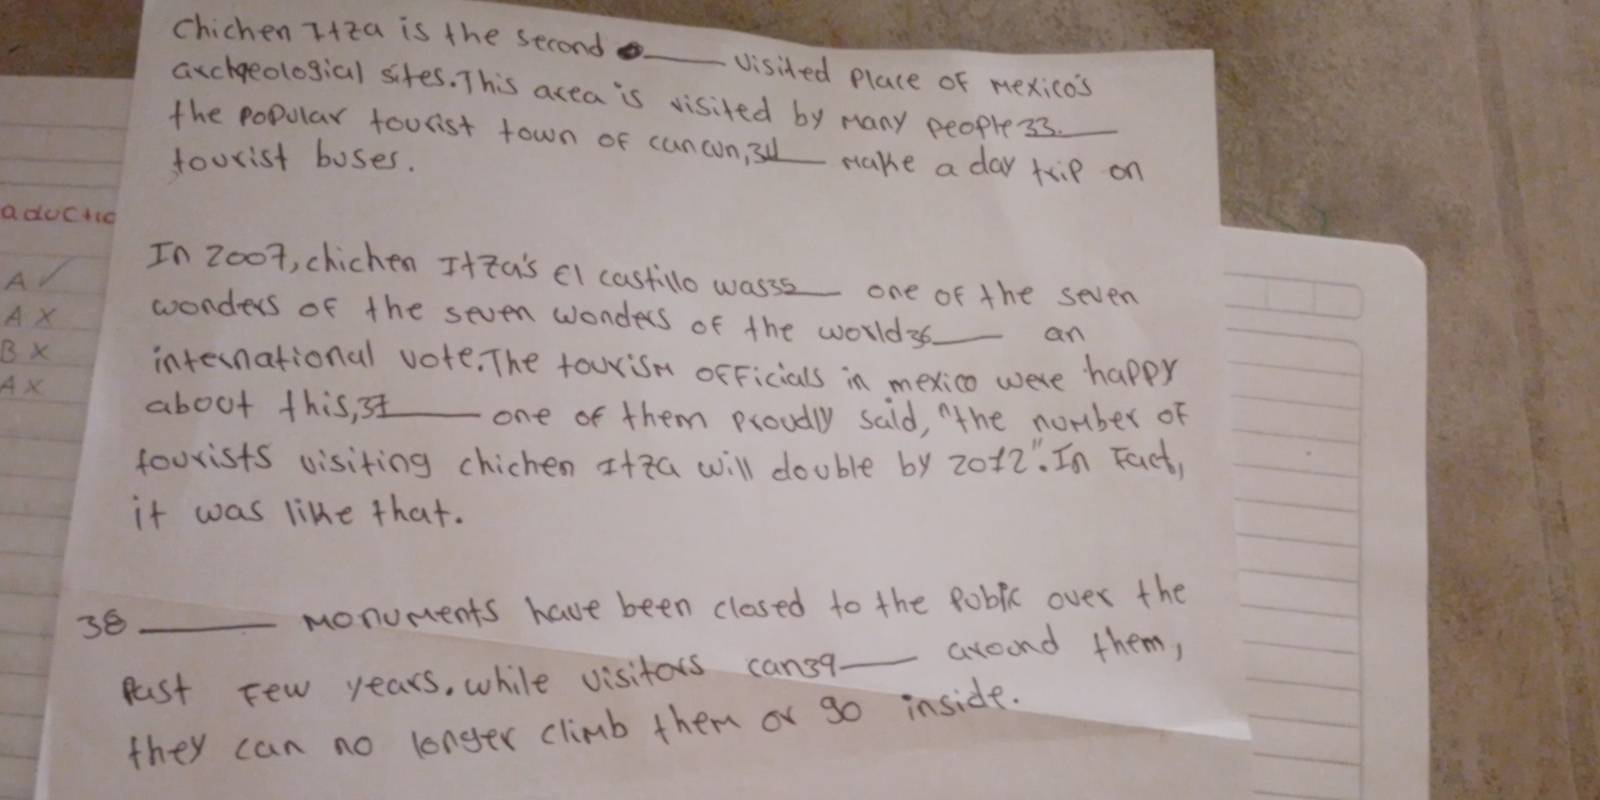 Chichen Itza is the second ____ visited place of Mexico's
archgeological sites. This area is visited by many people 33.____
the popular tourist town of cancun, 34____ make a day trip on
tourist buses.
In 2007, chichen Itza's El castillo was 35____ one of the seven
wonders of the seven wonders of the world 36____ an
international vote. The tourism officials in mexico were happy
about this, 37____ one of them proudly said, "the number of
tourists visiting chichen Itza will double by 2012". In Fact,
it was like that.
38____ monuments have been closed to the public over the
past few years. while visitors can 39____ around them,
they can no longer climb them or go inside.
aductio
A ✓
A X
B X
A X